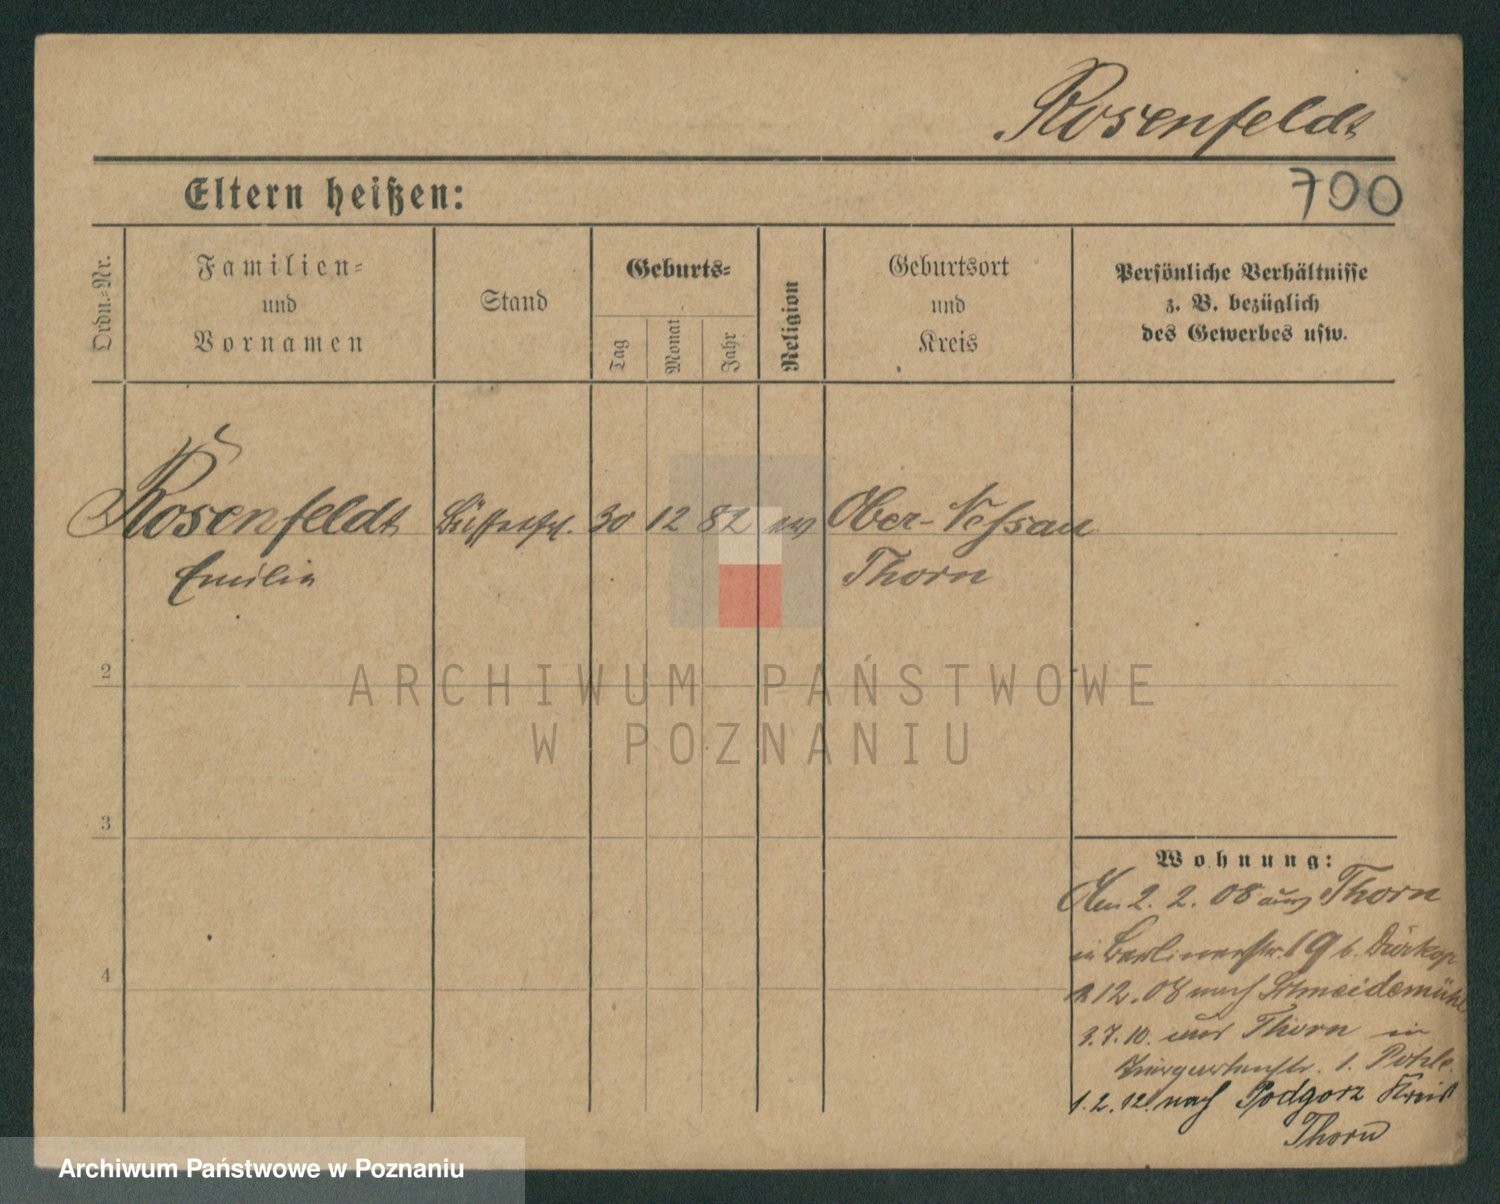 Rosenfeldt
700
Eltern heißen:
Ordn.=Nr.
Familien=
und
Vornamen
Stand
Geburts=
Tag
Monat
Jahr
Religion
Geburtsort
und
Kreis
Persönliche Verhältnisse
z. B. bezüglich
des Gewerbes usw.
Rosenfeldt 30 12 82 ev Ober-Nessau
Emilie Thorn
2
3
4
ARCHIWUM PAŃSTWOWE
W POZNANIU
Wohnung:
Am 2. 2. 08 aus Thorn
in Berlinerstr. 19 b. Dürkop
12. 08 nach Schneidemühl
3.7.10. aus Thorn in
1. Pohle
1.2.12. nach Podgorz Kreis
Thorn
Archiwum Państwowe w Poznaniu